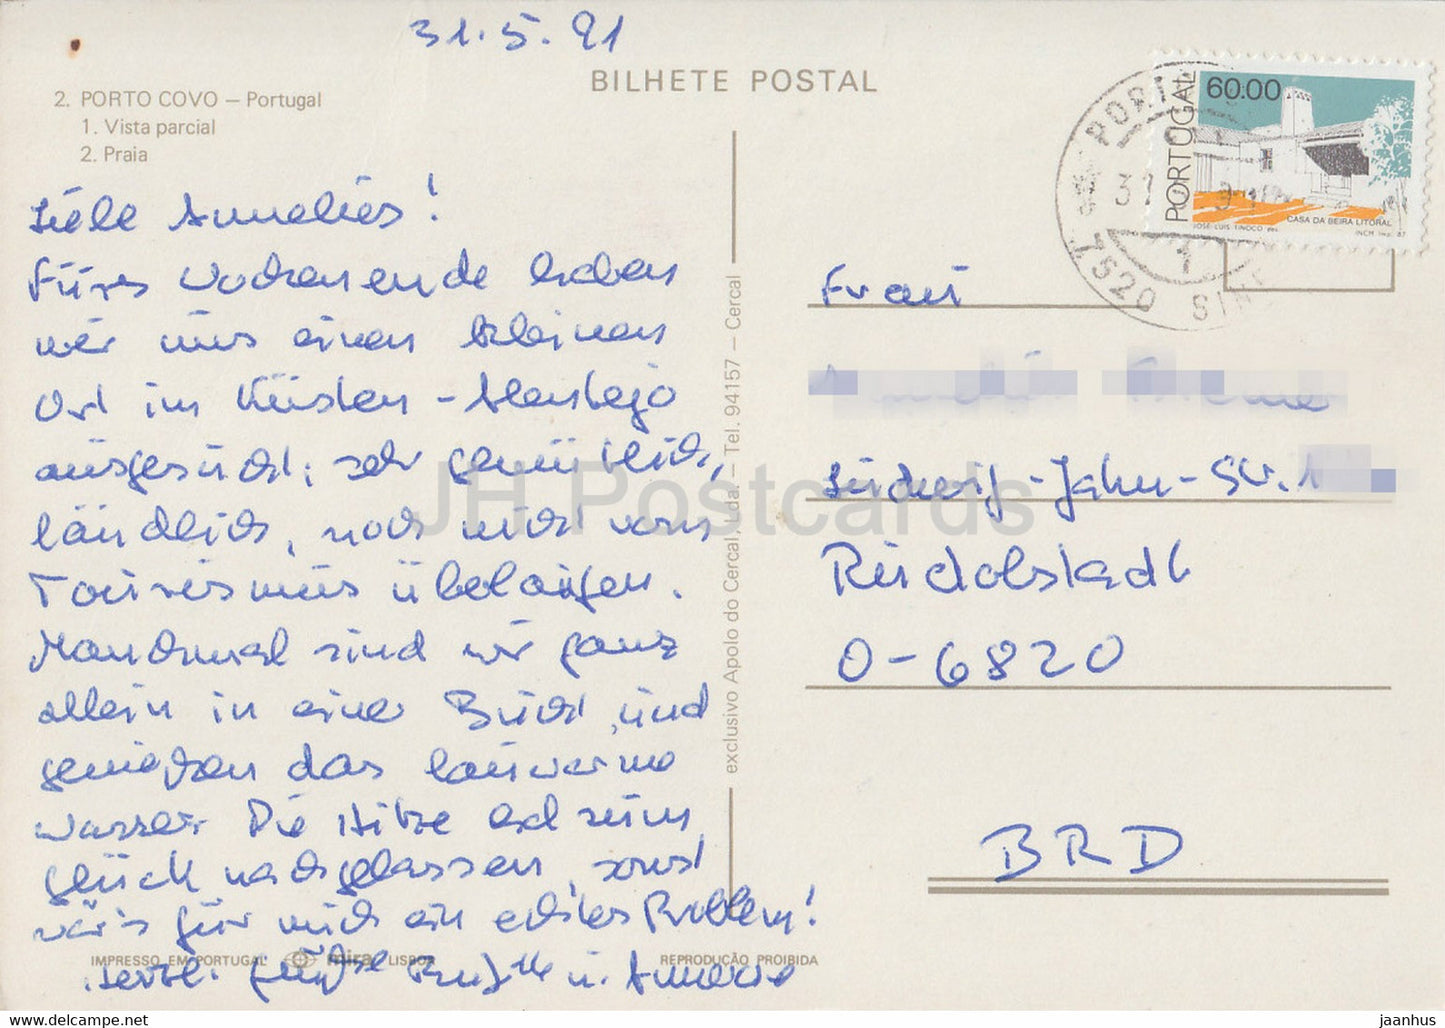 31.5.91
BILHETE POSTAL
2. PORTO COVO – Portugal
1. Vista parcial
2. Praia
Liebe Annelies!
Fürs Wochenende haben
wir uns einen kleinen
Ort im Küsten-Alentejo
ausgesucht; sehr gemütlich,
ländlich, noch nicht vom
Tourismus überlaufen.
Manchmal sind wir ganz
allein in einer Bucht und
genießen das lauwarme
Wasser. Die Hitze hat zum
Glück nachgelassen, sonst
wär's für mich ein echtes Problem!
Herzl. Grüße u.
IMPRESSO EM PORTUGAL mirac LISBOA
REPRODUÇÃO PROIBIDA
exclusivo Apolo do Cercal, Lda. – Tel. 94157 – Cercal
PORTUGAL
60.00
CASA DA BEIRA LITORAL
JOSÉ LUIS TINOCO des.
INCM imp. 87
7520 SINES
1
Frau
Ludwig-Jahn-Str. 1
Rudolstadt
O-6820
BRD
JH Postcards
https://www.jh-postcards.com/
jaanhus